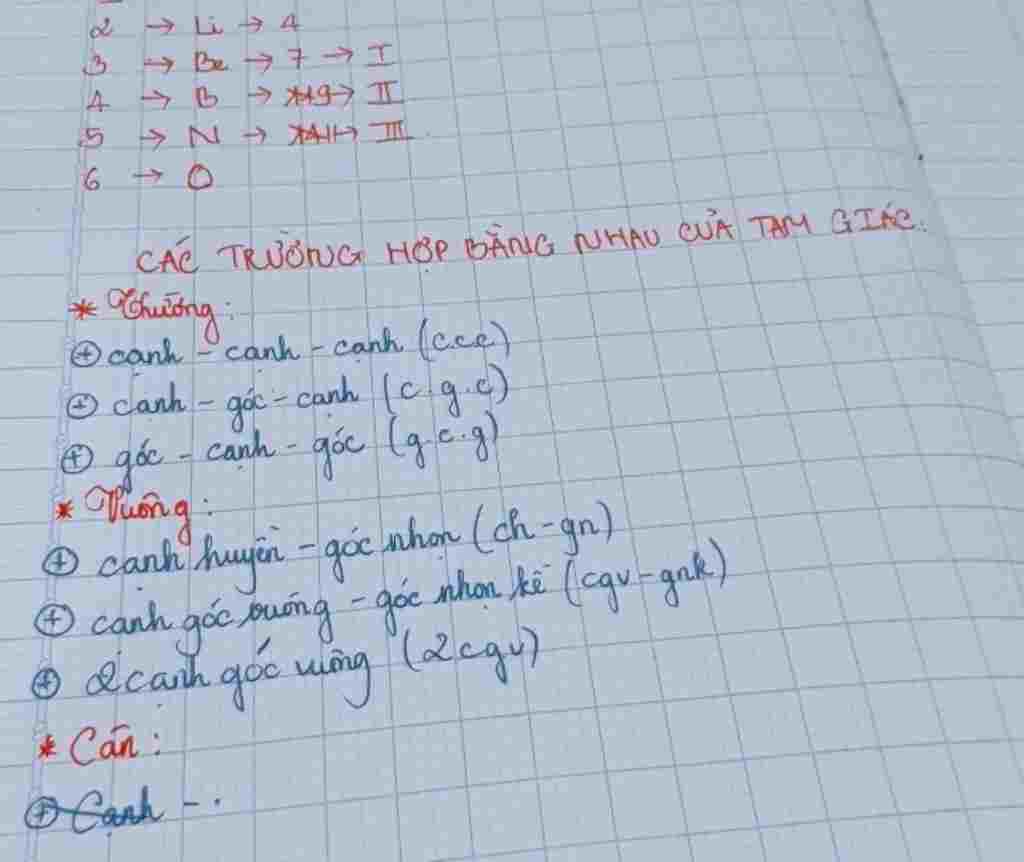 2 → Li → 4
3 → Be → 7 → I
4 → B → 9 → II
5 → N → 11 → III
6 → O
CÁC TRƯỜNG HỢP BẰNG NHAU CỦA TAM GIÁC.
* Thường:
+ cạnh - cạnh - cạnh (c.c.c)
+ cạnh - góc - cạnh (c.g.c)
+ góc - cạnh - góc (g.c.g)
* Vuông:
+ cạnh huyền - góc nhọn (ch - gn)
+ cạnh góc vuông - góc nhọn kề (cgv - gnk)
+ 2 cạnh góc vuông (2cgv)
* Cân:
+ Cạnh -